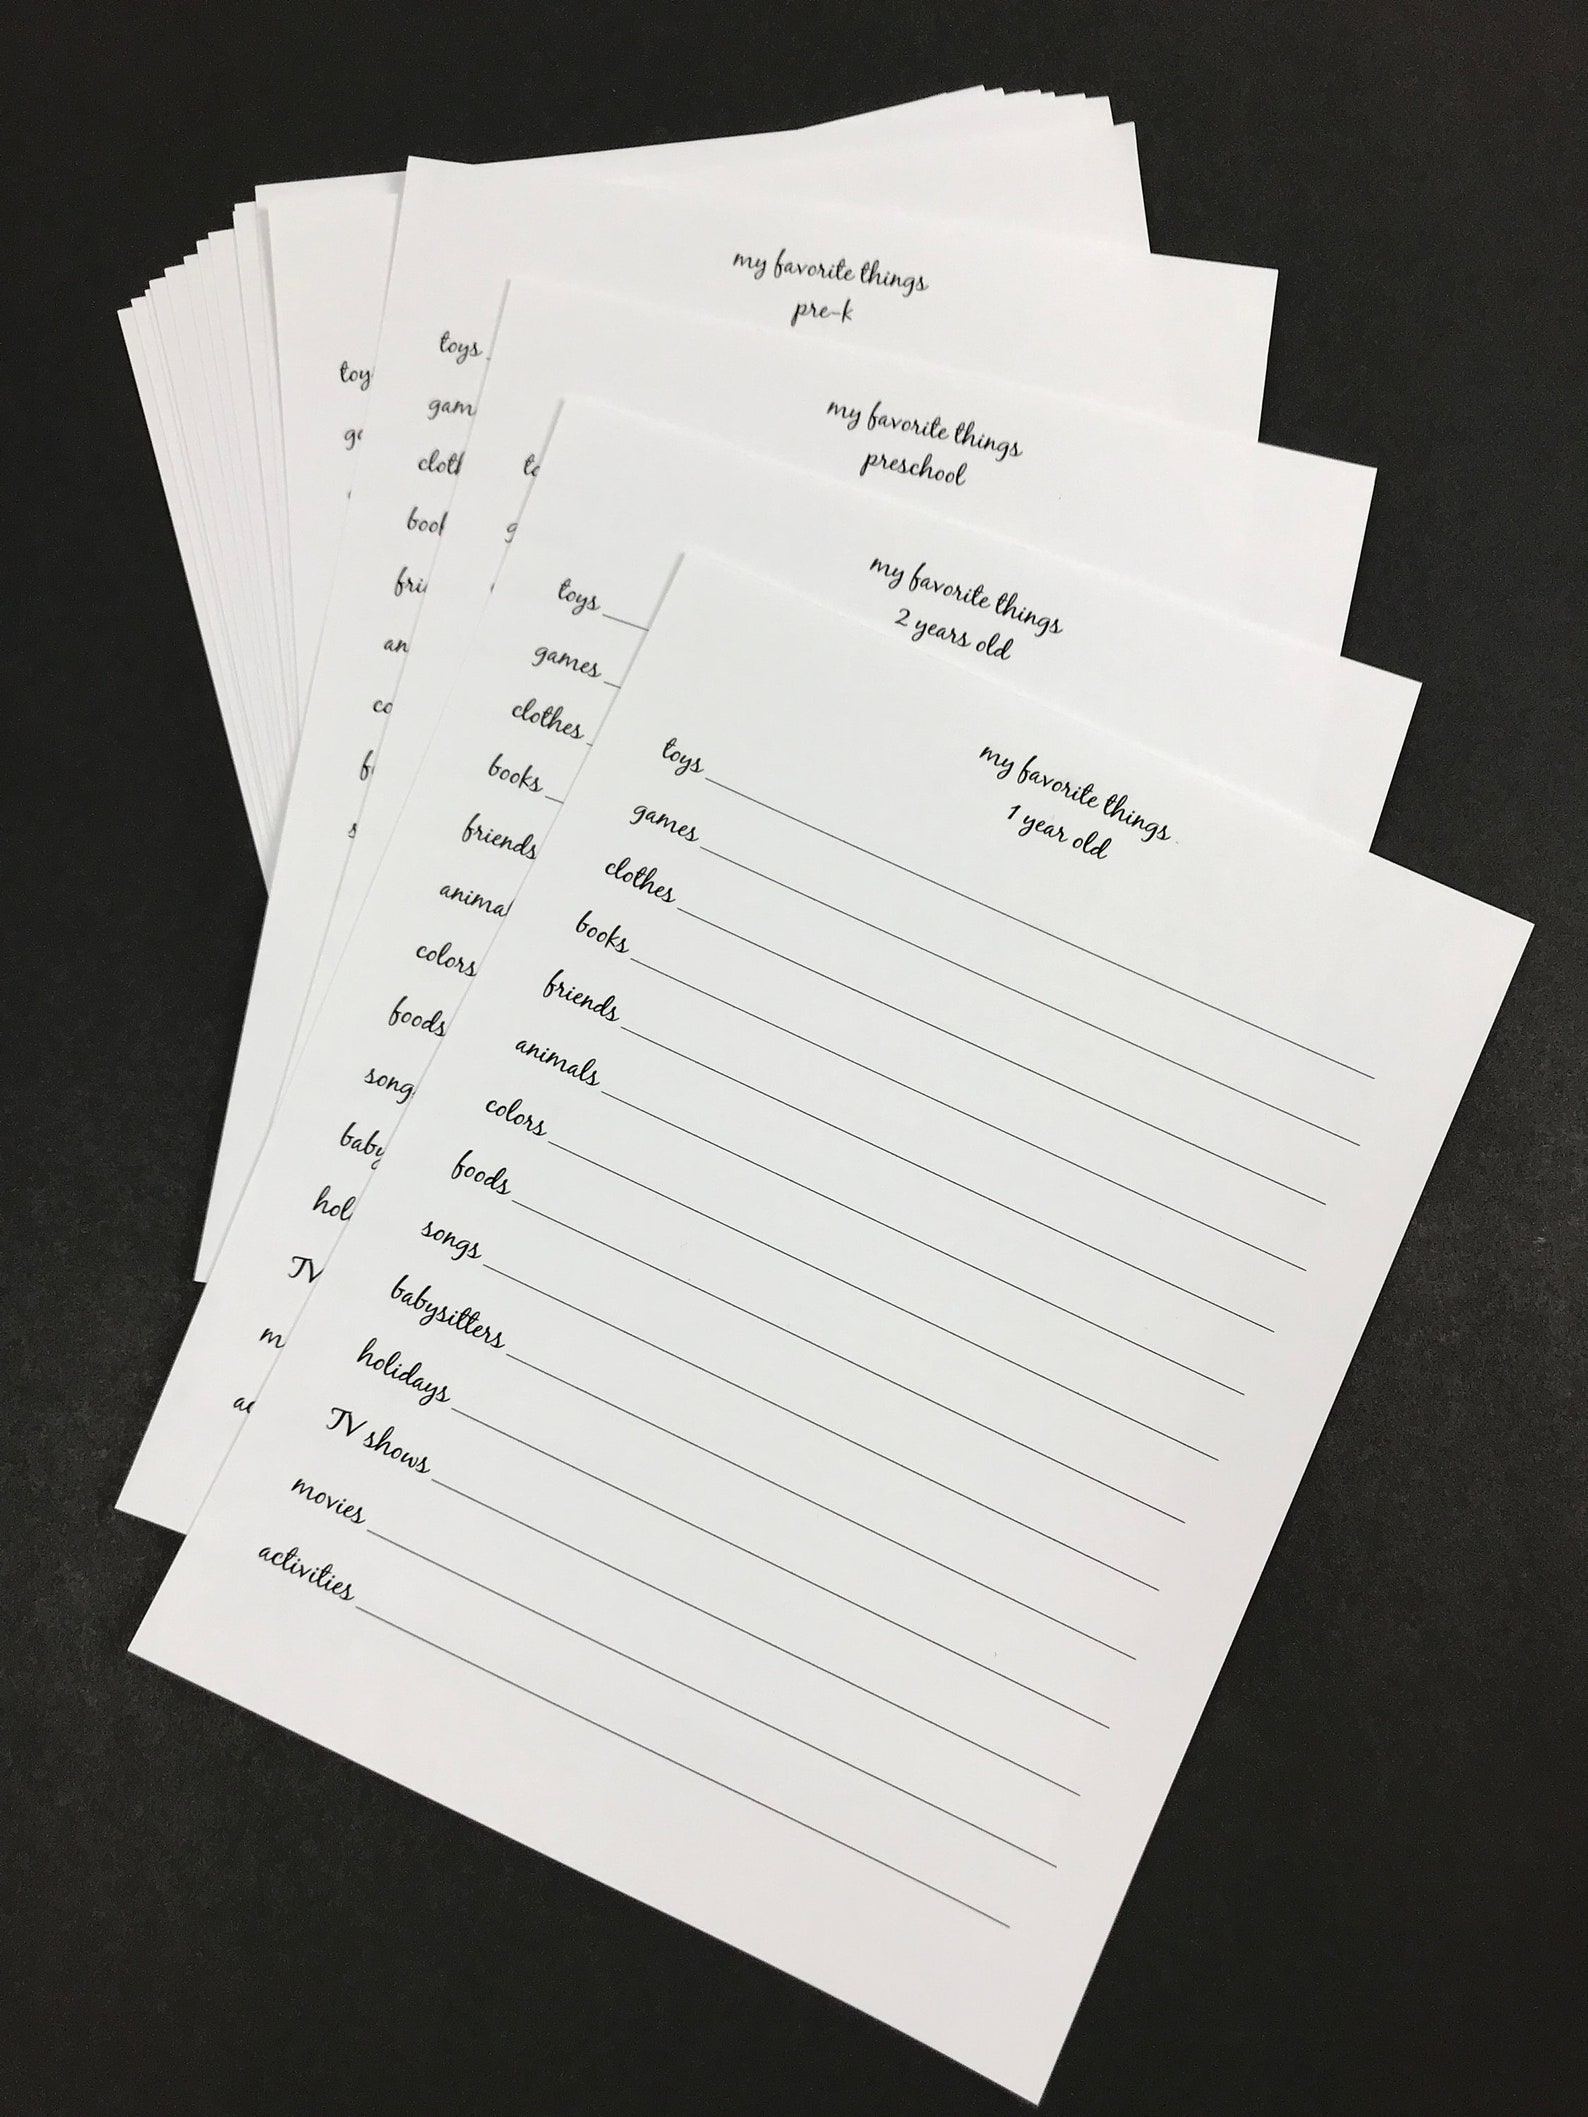 my favorite things
pre-k
toys
my favorite things
preschool
my favorite things
2 years old
toys
games
clothes
books
friends
colors
foods
my favorite things
1 year old
toys
games
clothes
books
friends
animals
colors
foods
songs
babysitters
holidays
TV shows
movies
activities